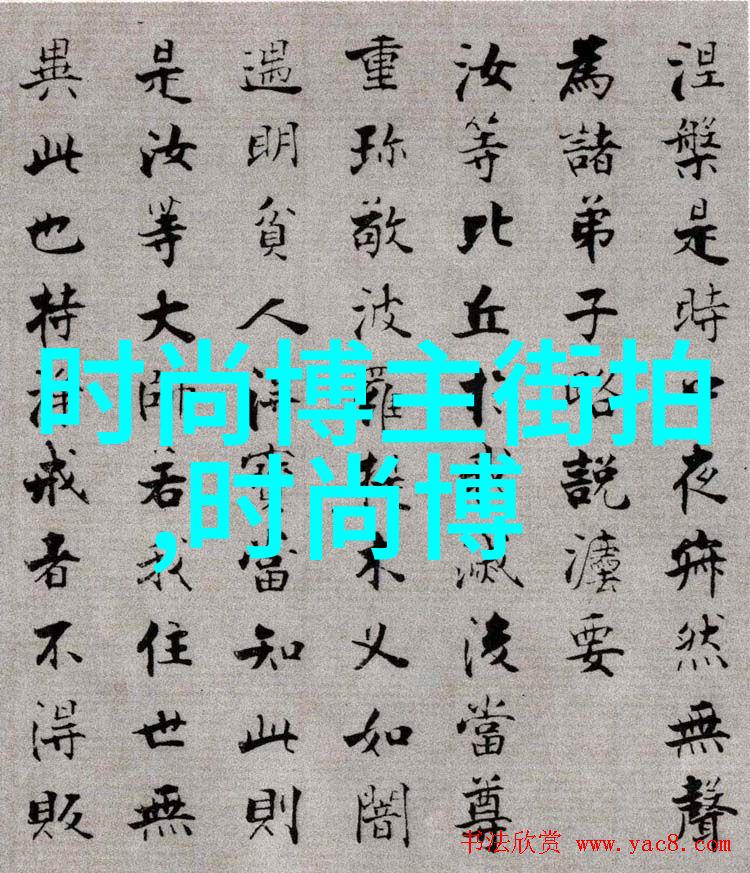 涅槃是時中夜寂然無聲
為諸弟子略説灋要
汝等比丘於我滅後當尊
重珎敬波羅提木叉如闇
遇明貧人得寶當知此則
是汝等大師若我住世無
異此也持淨戒者不得販
时尚博主街拍
,时尚博
书法欣赏 www.yac8.com